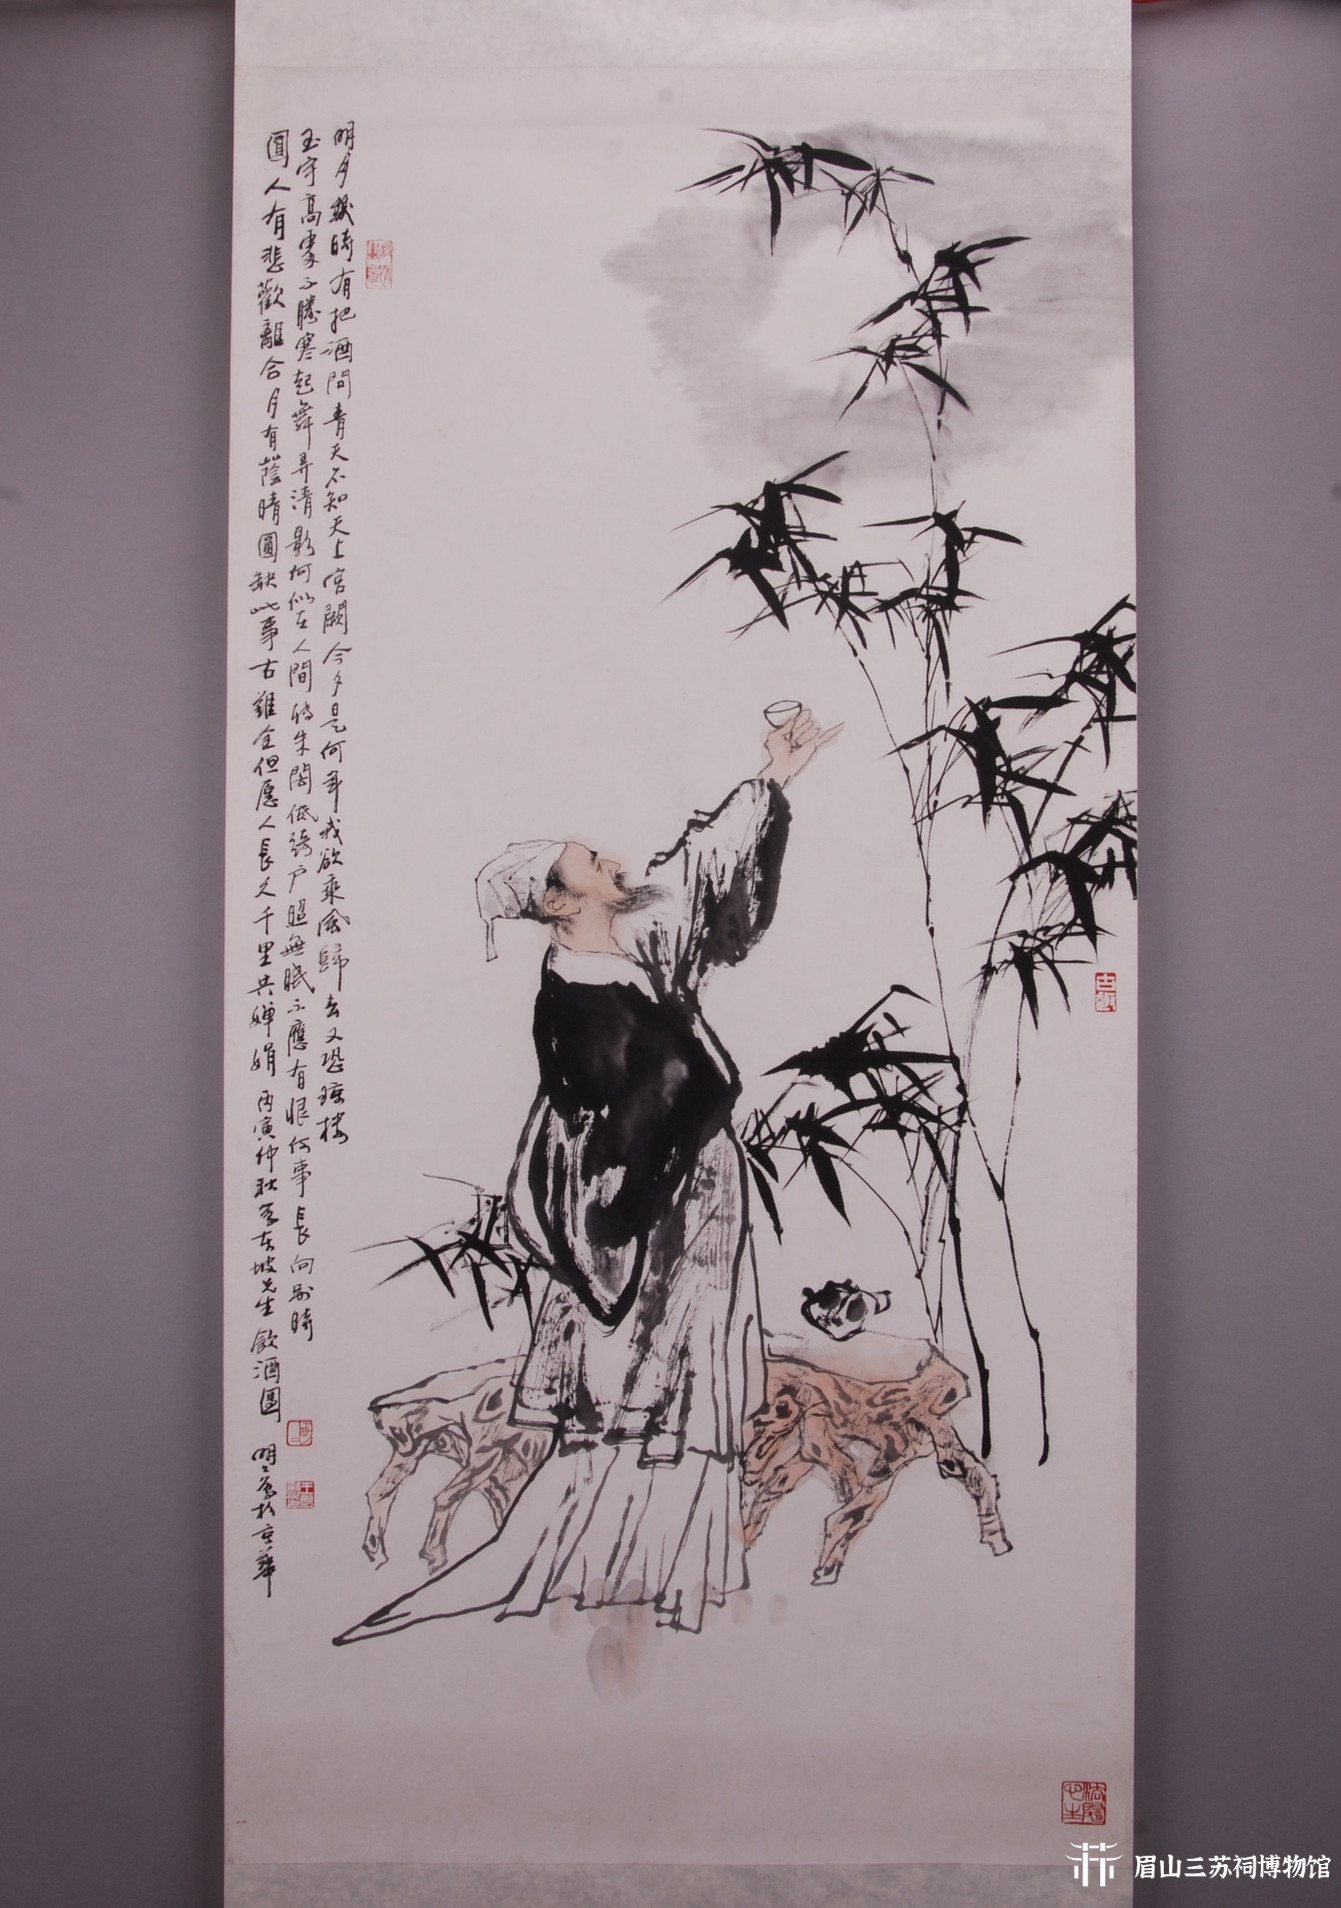 明月幾時有把酒問青天不知天上宮闕今夕是何年我欲乘風歸去又恐瓊樓
玉宇高處不勝寒起舞弄清影何似在人間轉朱閣低綺户照無眠不應有恨何事長向別時
圓人有悲歡離合月有蔭晴圓缺此事古難全但愿人長久千里共嬋娟 丙寅仲秋写东坡先生飲酒圖
明明寫於京華
眉山三苏祠博物馆